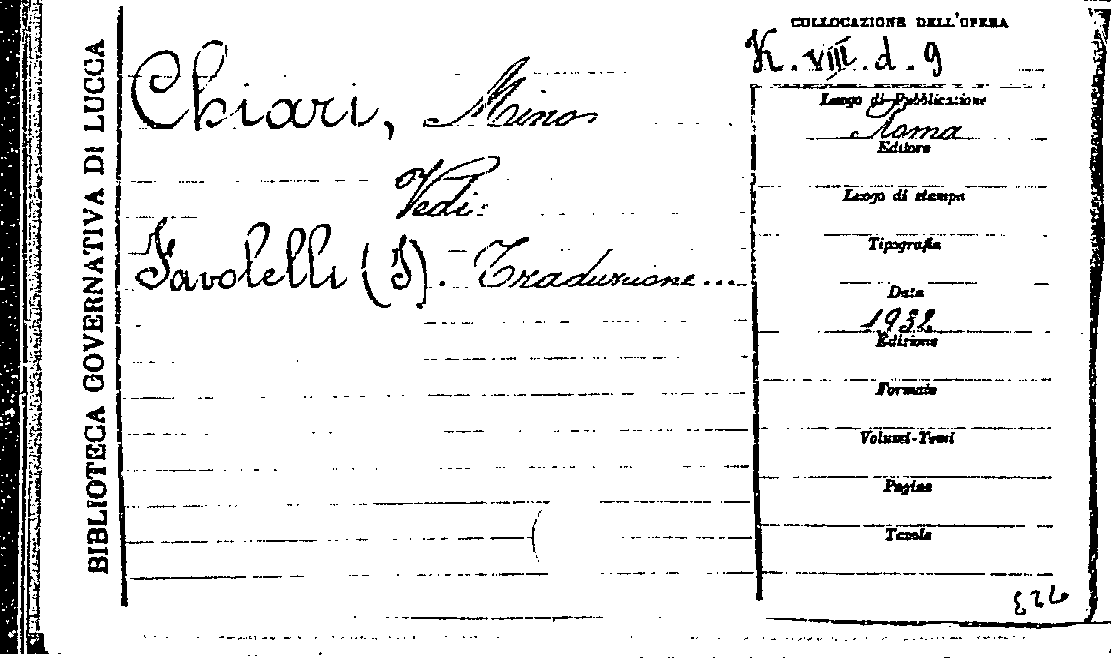 BIBLIOTECA GOVERNATIVA DI LUCCA
Chiari, Minos
Vedi:
Favolelli (I). Traduzione...
COLLOCAZIONE DELL'OPERA
K. VIII. d. 9
Luogo di Pubblicazione
Roma
Editore
Luogo di stampa
Tipografia
Data
1932
Edizione
Formato
Volumi-Tomi
Pagine
Tavole